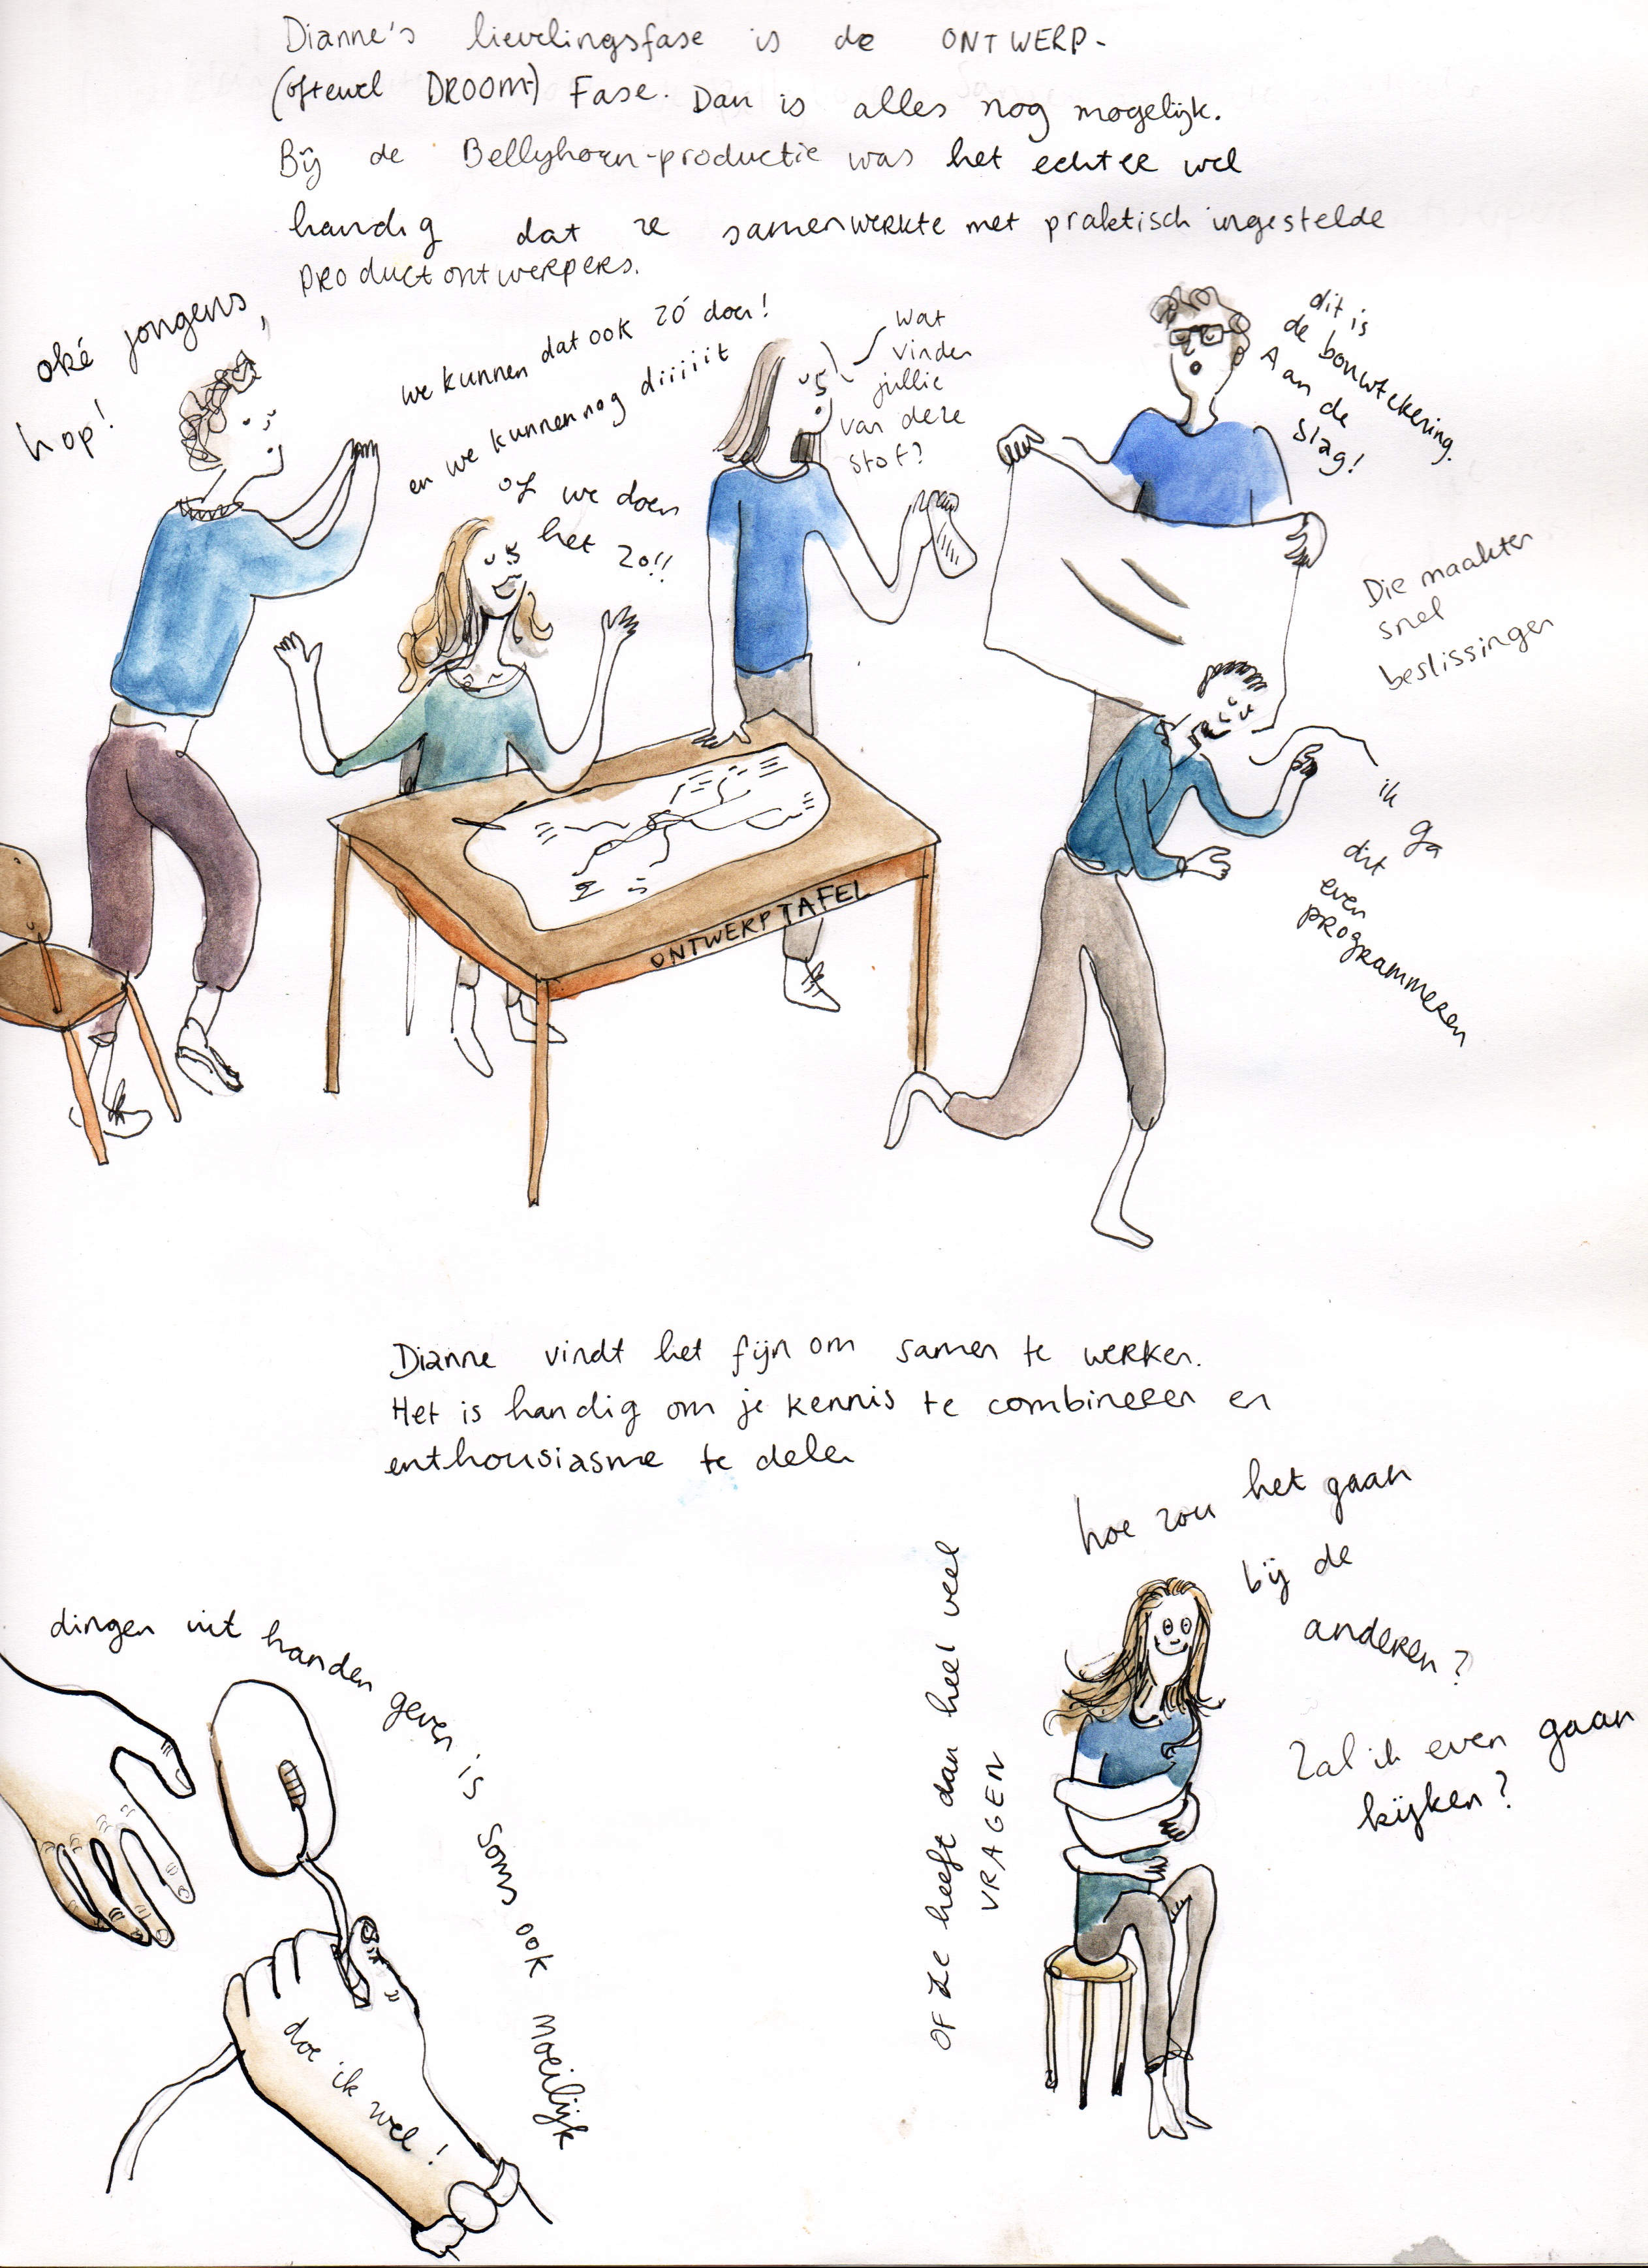 Dianne's lievelingsfase is de ONTWERP-
(oftewel DROOM-) Fase. Dan is alles nog mogelijk.
Bij de Bellyhorn-productie was het echter wel
handig dat ze samenwerkte met praktisch ingestelde
productontwerpers.
oké jongens,
hop!
we kunnen dat ook zó doen!
en we kunnen nog diiiiit
of we doen
het zo!!
wat
vinden
jullie
van deze
stof?
dit is
de bouwtekening.
Aan de
slag!
Die maakten
snel
beslissingen
ik ga
dit
even
programmeren
ONTWERPTAFEL
Dianne vindt het fijn om samen te werken.
Het is handig om je kennis te combineren en
enthousiasme te delen
dingen uit handen geven is soms ook moeilijk
doe ik wel!
OF ze heeft dan heel veel
VRAGEN
hoe zou het gaan
bij de
anderen?
Zal ik even gaan
kijken?